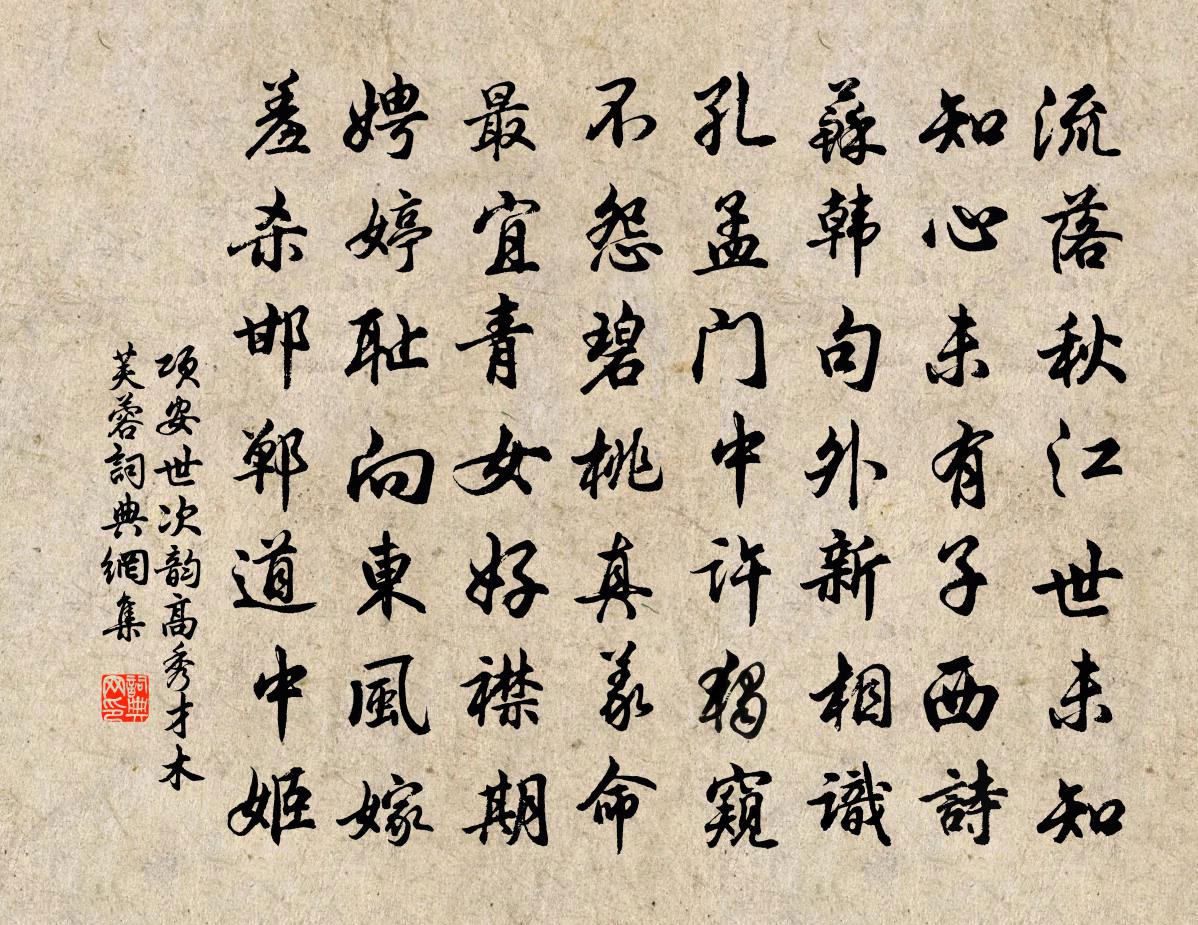 流落秋江世未知
知心未有子西詩
蘇韩句外新相識
孔孟门中许獨窺
不怨碧桃真義命
最宜青女好襟期
娉婷耻向東風嫁
羞杀邯郸道中姬
项安世次韵高秀才木
芙蓉詞典網集
詞典网印